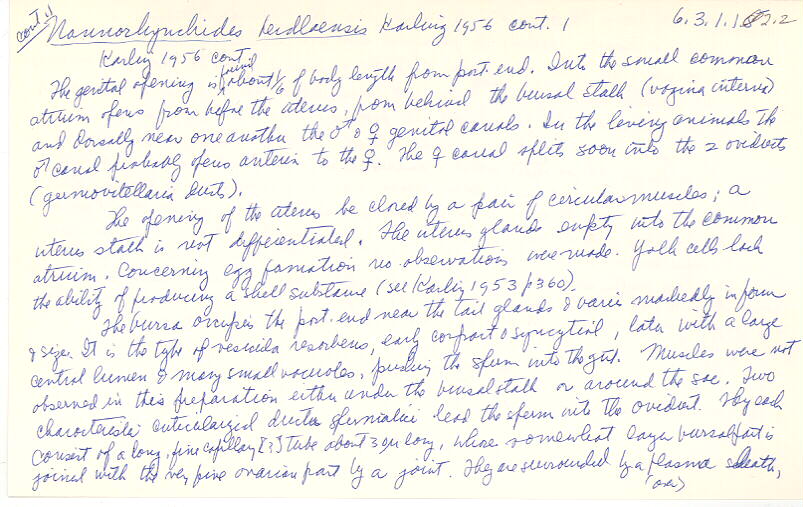 cont. 1
Nannorhynchides herdlaensis Karling 1956 cont. 1
6.3.1.1. 2.2
Karling 1956 cont.
found
The genital opening is about 1/6 of body length from post. end. Into the small common
atrium opens from before the uterus, from behind the bursal stalk (vagina interna)
and dorsally near one another the ♂ & ♀ genital canals. In the living animals the
♂ canal probably opens anterior to the ♀. The ♀ canal splits soon into the 2 oviducts
(germovitellaria ducts).
The opening of the uterus be closed by a pair of circular muscles; a
uterus stalk is not differentiated. The uterus glands empty into the common
atrium. Concerning egg formation no observations were made. Yolk cells lack
the ability of producing a shell substance (see Karling 1953 p360).
The bursa occupies the post. end near the tail glands & varies markedly in form
& size. It is the type of vesicula resorbens, early compact & syncytial, later with a large
central lumen & many small vacuoles, pushing the sperm into the gut. Muscles were not
observed in this preparation either under the bursal stalk or around the sac. Two
characteristic cuticularized ductus spermatici lead the sperm into the oviduct. They each
consist of a long, fine capillary [?] tube about 30µ long, whose somewhat larger bursal part is
joined with the very fine ovarian part by a joint. They are surrounded by a plasma sheath,
(over)